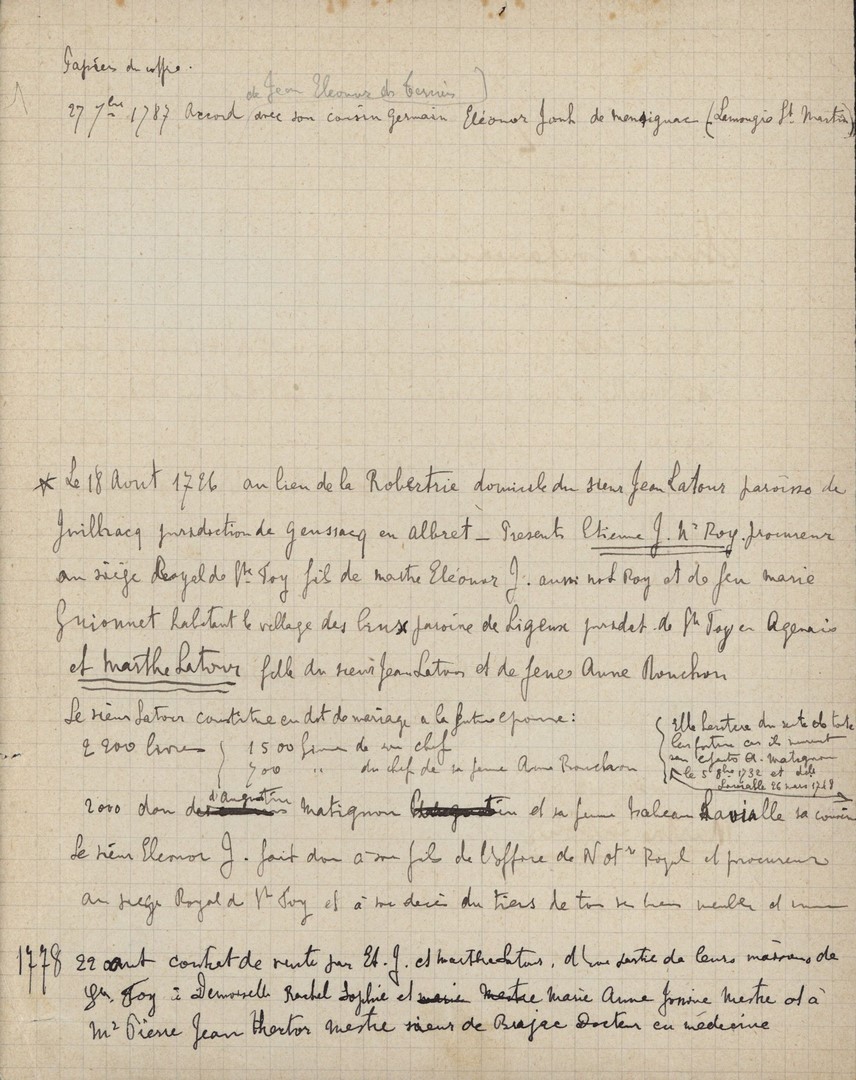 Papiers du coffre.
de Jean Eleonor des
27 7bre 1787 Accord avec son cousin germain Eléonor Jonh de mensignac (Lemougie St Martin)
Le 18 Aout 1726 au lieu de la Robertrie domicile du sieur Jean Latour paroisse de
juridiction de Genssacq en albret _ Presents Etienne J. Nre Roy. procureur
au siège Royal de Ste Foy fils de maitre Eléonor J. aussi not Roy et de feu marie
Guionnet habitant le village des paroisse de Ligeux jurisdct. de Ste Foy en Agenais
et Marthe Latour fille du sieur Jean Latour et de feue Anne Rouchon
Le sieur Latour constitue en dot de mariage a la future epouse :
2200 livres { 1500 de son chef
700 " du chef de sa feme Anne Rouchon
{ Elle heritera du reste de toute
leur fortune car ils meurent
san efants A. Matignon
le 5 9bre 1732 et
26 mars 1748
2000 don d'Augustin Matignon et sa feme Isabeau Lavialle sa cousine
Le sieur Eleonor J. fait don a son fils de l'office de Notre Royal et procureur
au siege Royal de Ste Foy et à son decès du tiers de tous ses biens meubles et
1778 22 aout contrat de vente par Et. J. et marthe Latour, d'une partie de leurs maisons de
Ste Foy à Demoiselle Rachel Sophie et Marie Anne Mestre et à
Mr Pierre Jean Hector Mestre sieur de Brajac Docteur en médecine